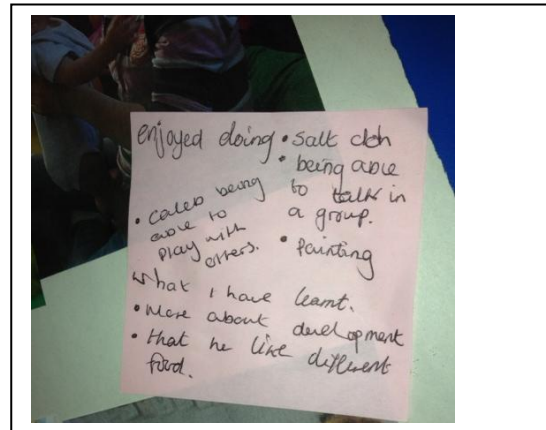 enjoyed doing • salt doh
• being able
to talk in
a group.
• Painting
• caleb being
able to
play with
others.
what I have learnt.
• More about development
• that he like different
food.